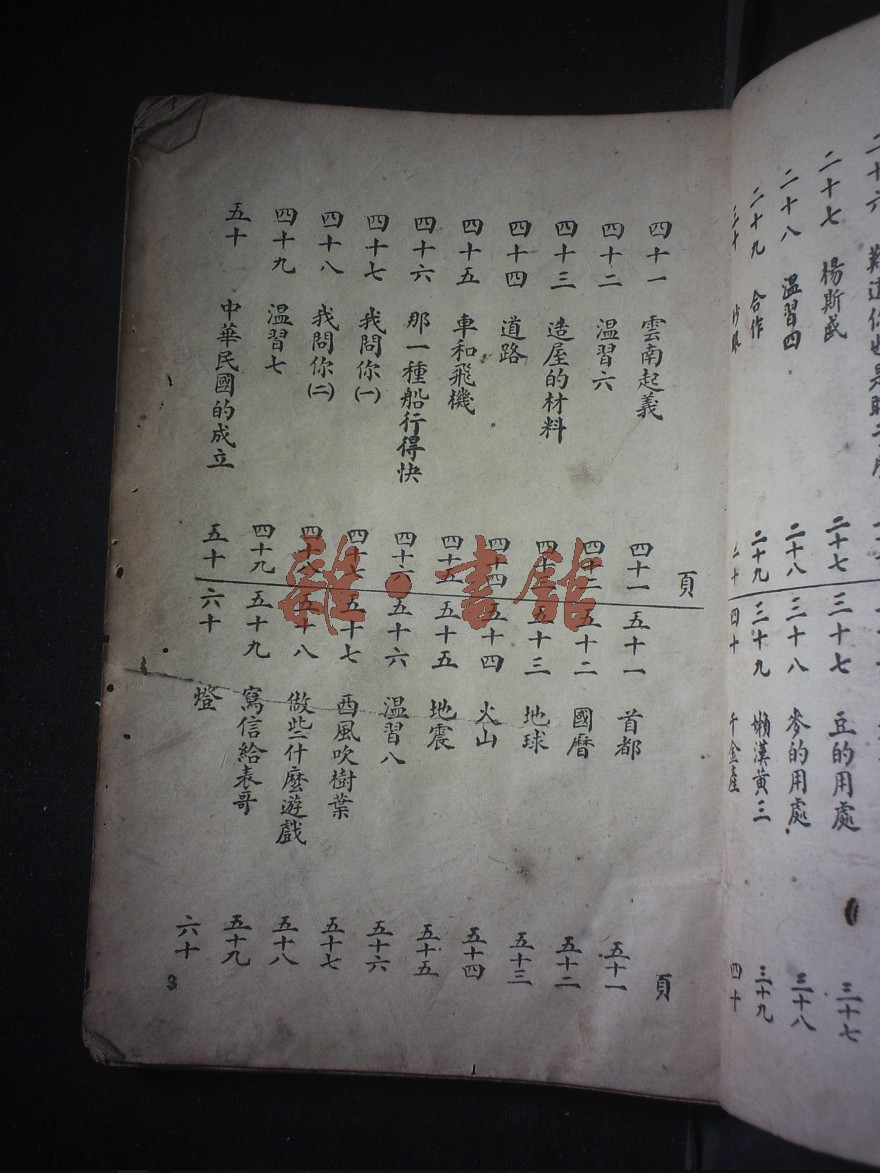 二十七 楊斯盛 二十七
二十八 溫習四 二十八
二十九 合作 二十九
三十七 豆的用處 三十七
三十八 麥的用處 三十八
三十九 懶漢黃三 三十九
四十 千金產 四十
頁
四十一 雲南起義 四十一
四十二 溫習六 四十二
四十三 造屋的材料 四十三
四十四 道路 四十四
四十五 車和飛機 四十五
四十六 那一種船行得快 四十六
四十七 我問你(一) 四十七
四十八 我問你(二) 四十八
四十九 溫習七 四十九
五十 中華民國的成立 五十
頁
五十一 首都 五十一
五十二 國曆 五十二
五十三 地球 五十三
五十四 火山 五十四
五十五 地震 五十五
五十六 溫習八 五十六
五十七 西風吹樹葉 五十七
五十八 做些什麼遊戲 五十八
五十九 寫信給表哥 五十九
六十 燈 六十
3
雜·書館